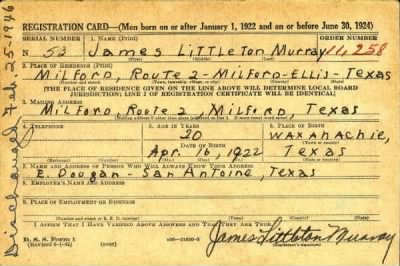 REGISTRATION CARD—(Men born on or after January 1, 1922 and on or before June 30, 1924)
SERIAL NUMBER 1. NAME (Print) ORDER NUMBER
N 53 James Littleton Murray 11,258
(First) (Middle) (Last)
2. PLACE OF RESIDENCE (Print)
Milford, Route 2 - Milford - Ellis - Texas
(Number and street) (Town, township, village, or city) (County) (State)
[THE PLACE OF RESIDENCE GIVEN ON THE LINE ABOVE WILL DETERMINE LOCAL BOARD
JURISDICTION; LINE 2 OF REGISTRATION CERTIFICATE WILL BE IDENTICAL]
3. MAILING ADDRESS
Milford, Route 2, Milford, Texas
4. TELEPHONE 5. AGE IN YEARS 6. PLACE OF BIRTH
20 Waxahachie,
DATE OF BIRTH
Apr. 16, 1922 Texas
(Mo.) (Day) (Yr.)
7. NAME AND ADDRESS OF PERSON WHO WILL ALWAYS KNOW YOUR ADDRESS
E. Dougan - San Antoine, Texas
8. EMPLOYER'S NAME AND ADDRESS
9. PLACE OF EMPLOYMENT OR BUSINESS
(Number and street or R. F. D. number) (Town) (County) (State)
I AFFIRM THAT I HAVE VERIFIED ABOVE ANSWERS AND THAT THEY ARE TRUE.
D. S. S. Form 1 (over)
James Littleton Murray
Discharged Feb 25-1946